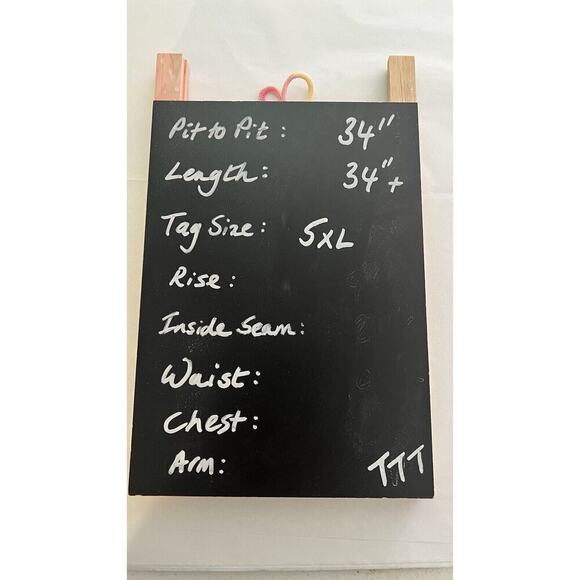 Pit to Pit: 34"
Length: 34"+
Tag Size: 5XL
Rise:
Inside Seam:
Waist:
Chest:
Arm: TTT